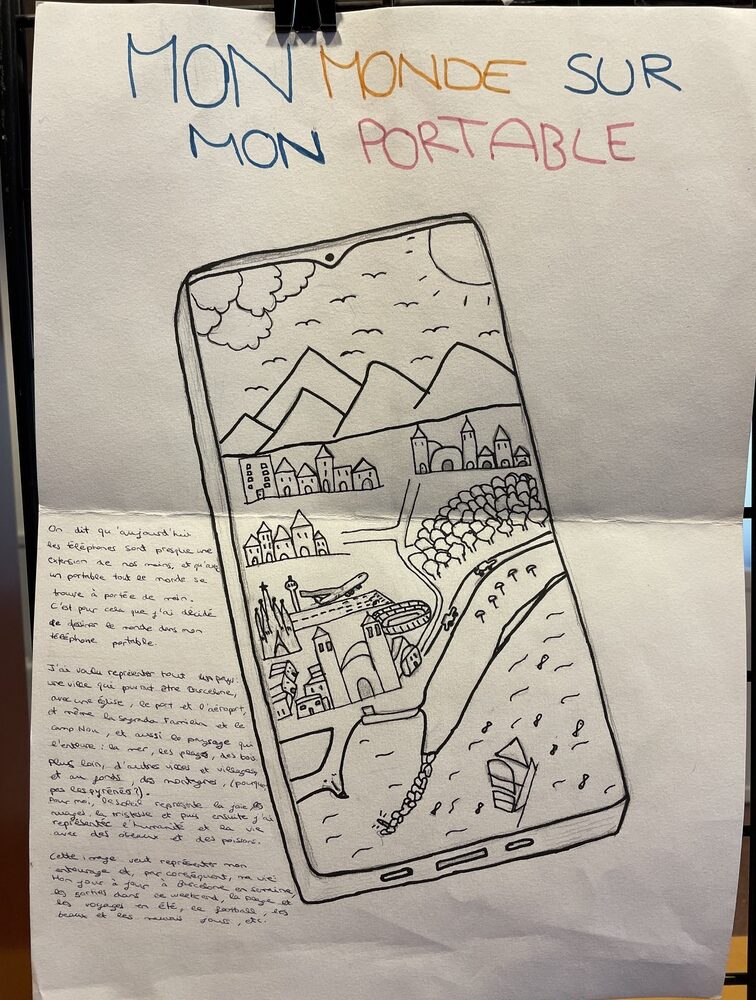 MON MONDE SUR
MON PORTABLE
On dit qu'aujourd'hui
les téléphones sont presque une
extension de nos mains, et qu'avec
un portable tout le monde se
trouve à portée de main.
C'est pour cela que j'ai décidé
de desirer le monde dans mon
téléphone portable.
J'ai voulu représenter tout un pays:
une ville qui pourrait être Barcelone,
avec une église, le port et l'aéroport,
et même la Sagrada Familia et le
Camp Nou, et aussi le paysage qui
l'entoure: la mer, les plages, des bois
plus loin, d'autres villes et villages,
et au fond, des montagnes, (pourquoi
pas les pyrénées?).
Pour moi, le soleil représente la joie, les
nuages, la tristesse et puis ensuite j'ai
représenté l'humanité et la vie
avec des oiseaux et des poissons.
Cette image veut représenter mon
entourage et, par conséquent, ma vie:
Mon jour à jour à Barcelone en semaine,
les sorties dans ce weekend, la plage et
les voyages en été, le football, les
beaux et les mauvais jours, etc.